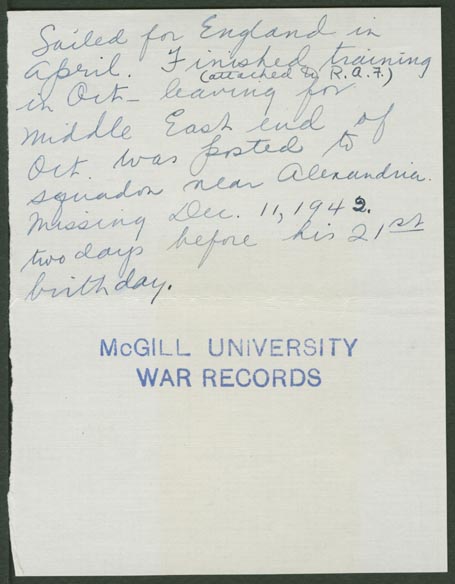 Sailed for England in
April. Finished training
(attached to R.A.F.)
in Oct – leaving for
Middle East end of
Oct. was posted to
squadron near Alexandria.
Missing Dec. 11, 1942.
two days before his 21st
birthday.
McGILL UNIVERSITY
WAR RECORDS